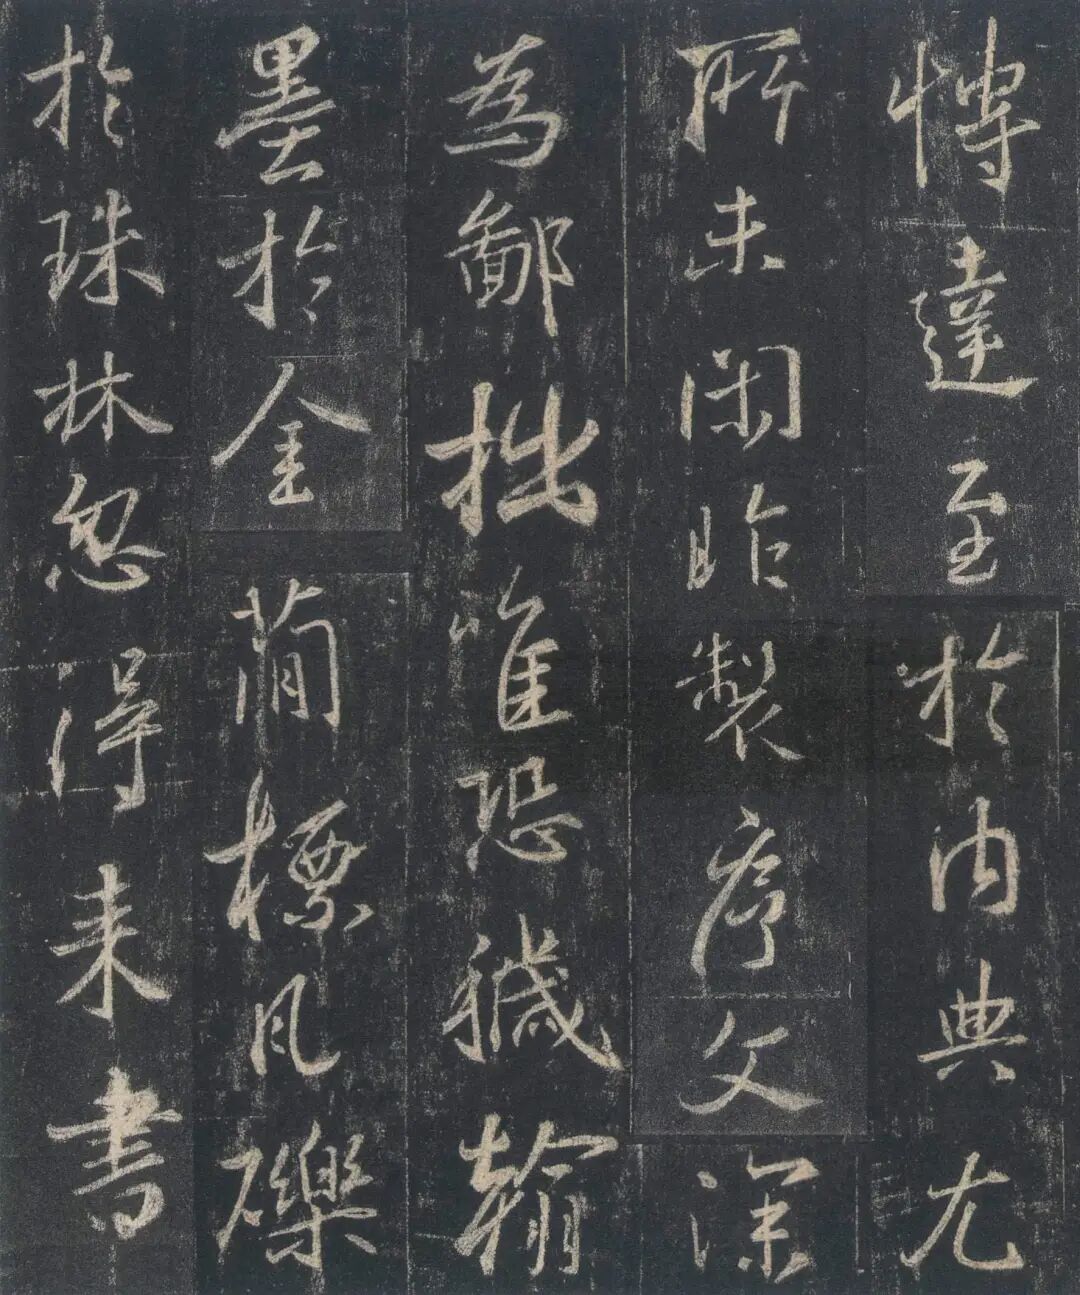 愽達至於内典尤
所未閑昨製序文深
為鄙拙唯恐穢翰
墨於金蕳標瓦礫
於珠林忽得来書